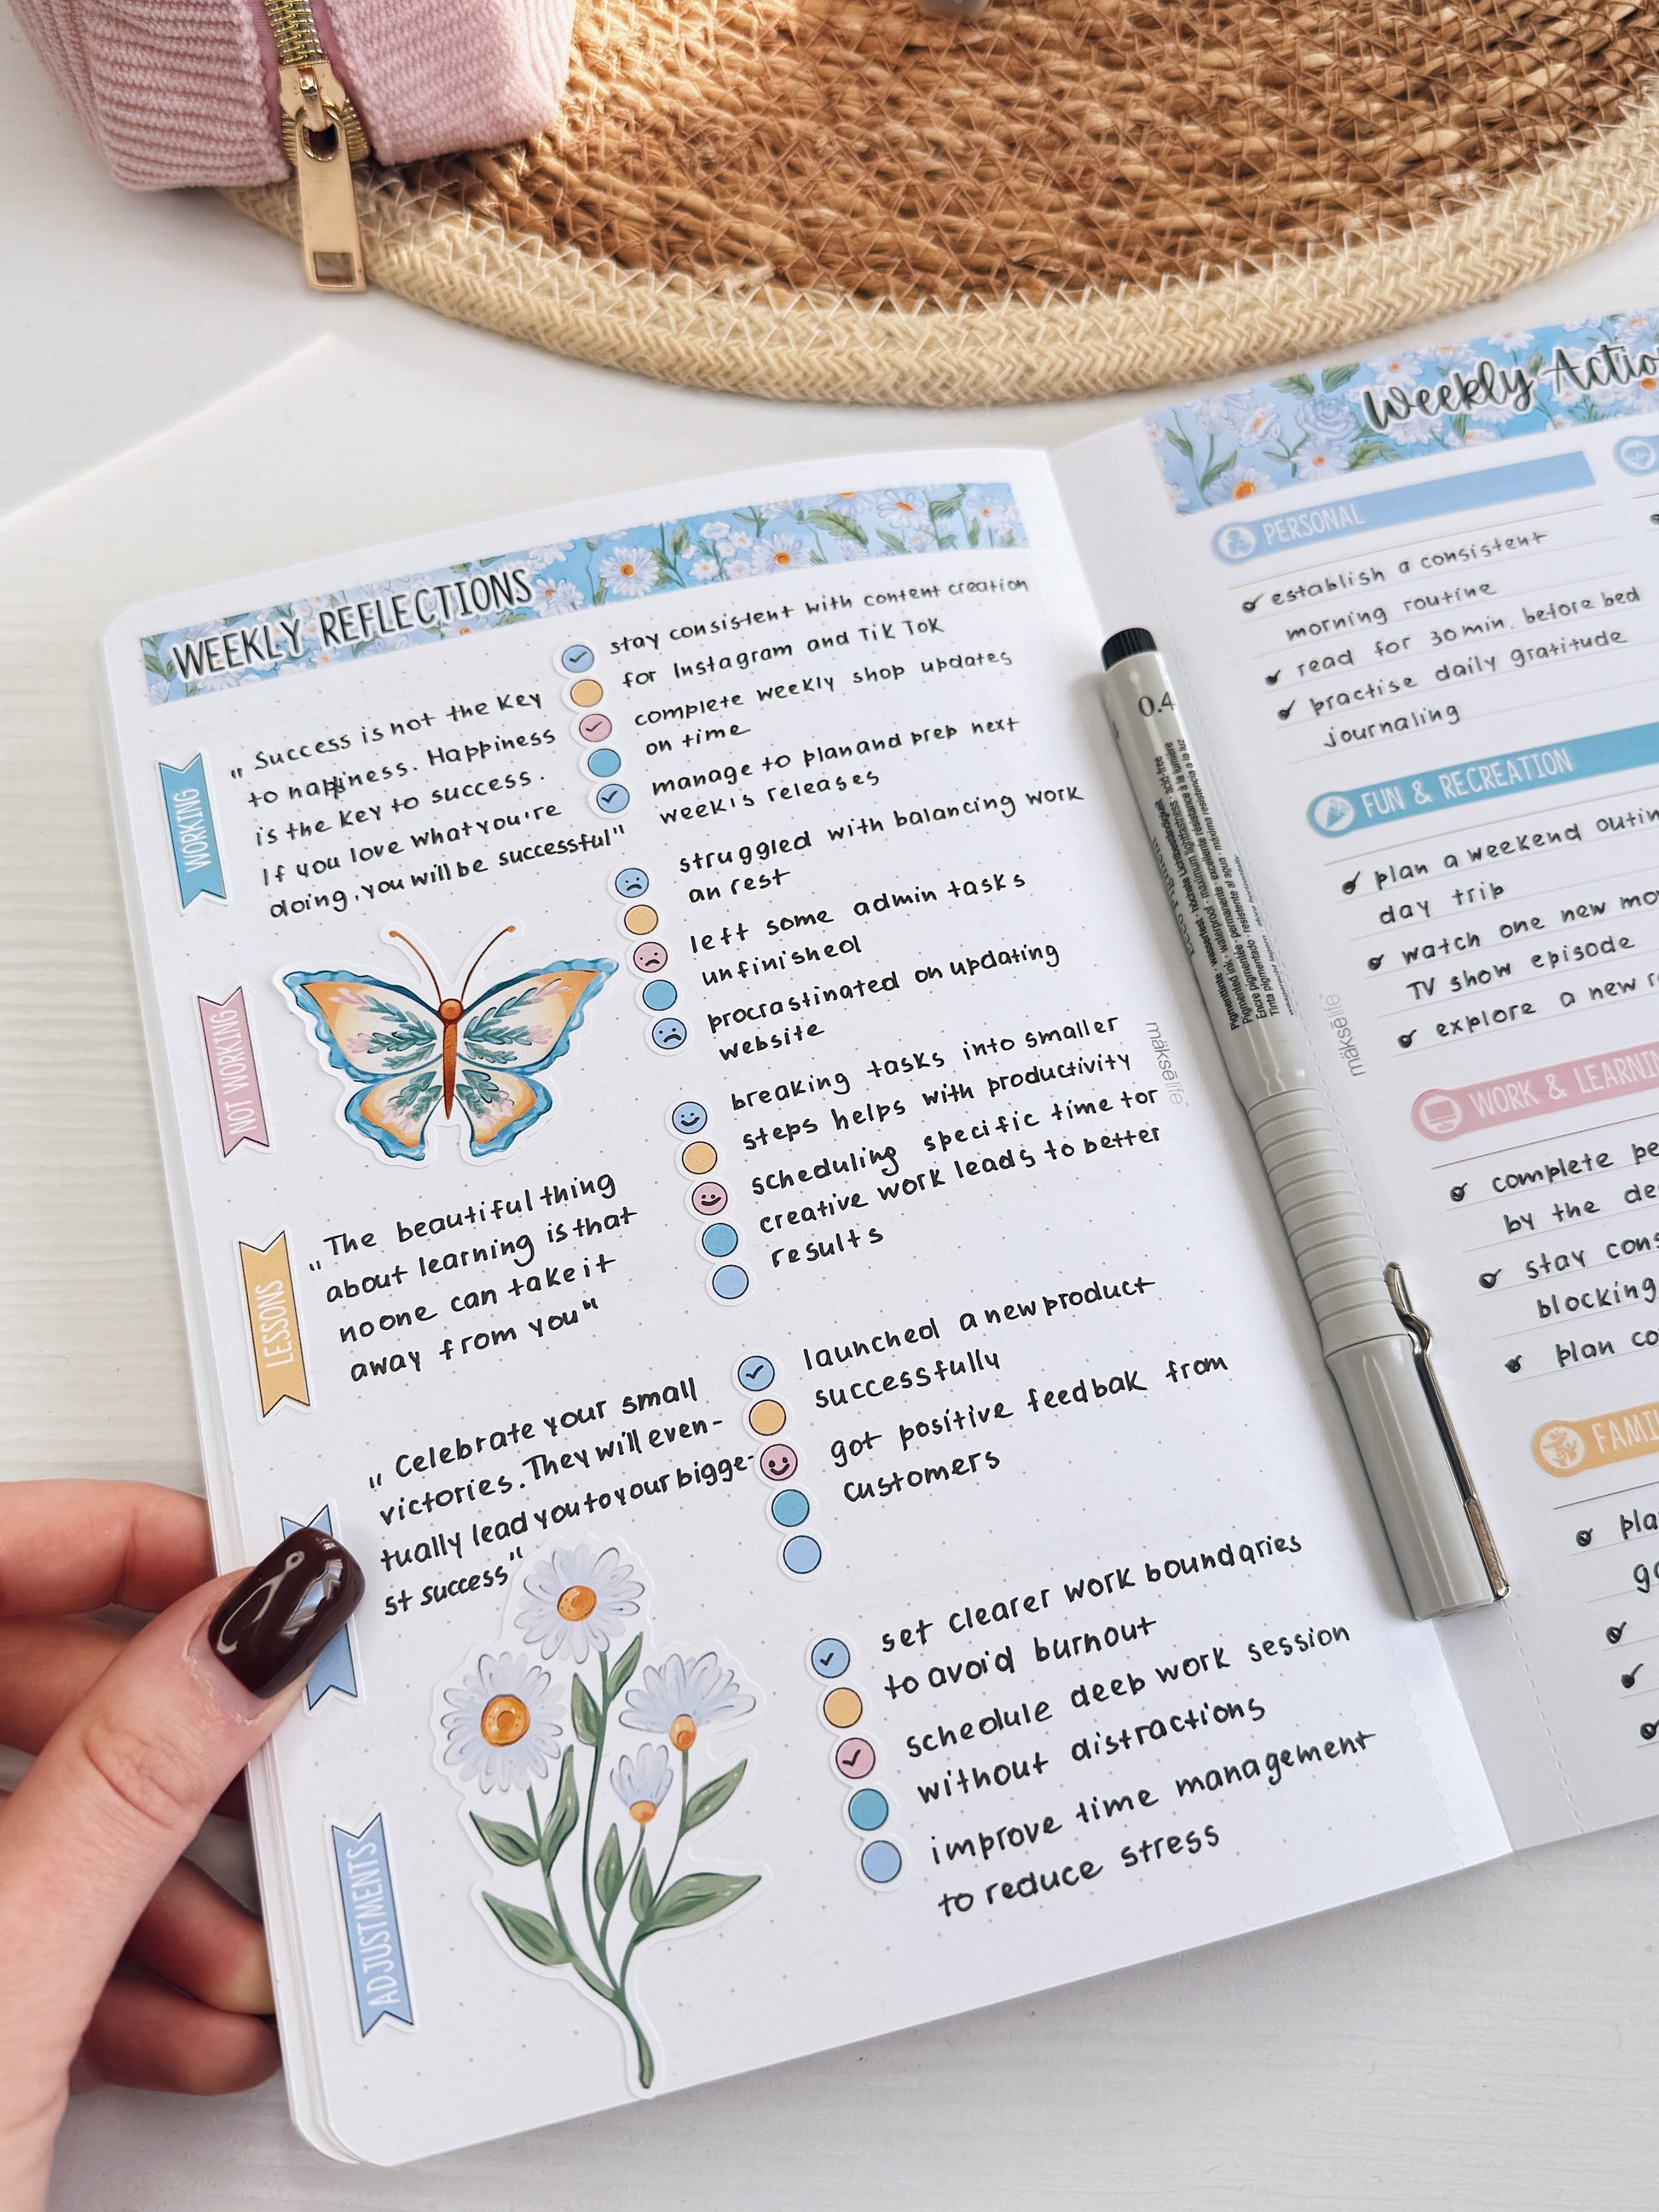 WEEKLY REFLECTIONS
WORKING
„Success is not the key
to happiness. Happiness
is the key to success.
If you love what you're
doing, you will be successful"
stay consistent with content creation
for Instagram and TikTok
complete weekly shop updates
on time
manage to plan and prep next
week's releases
NOT WORKING
struggled with balancing work
an rest
left some admin tasks
unfinished
procrastinated on updating
website
LESSONS
„The beautiful thing
about learning is that
no one can take it
away from you"
breaking tasks into smaller
steps helps with productivity
scheduling specific time for
creative work leads to better
results
„Celebrate your small
victories. They will even-
tually lead you to your bigge-
st success"
launched a new product
successfully
got positive feedbak from
customers
ADJUSTMENTS
set clearer work boundaries
to avoid burnout
schedule deep work session
without distractions
improve time management
to reduce stress
mäksēlife
0.4
Weekly
PERSONAL
establish a consistent
morning routine
read for 30 min. before bed
practise daily gratitude
journaling
FUN & RECREATION
plan a weekend
day trip
watch one new
TV show episode
explore a new
mäksēlife
WORK &
complete
by the
stay
blocking
plan